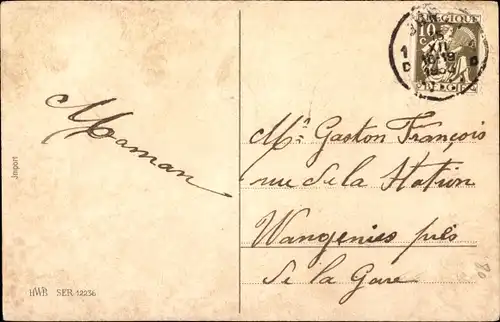 Maman
Import
HWB SER. 12236
BELGIQUE
10
C
XII
1 D
Mr Gaston François
rue de la Station
Wangenies près
de la Gare
20